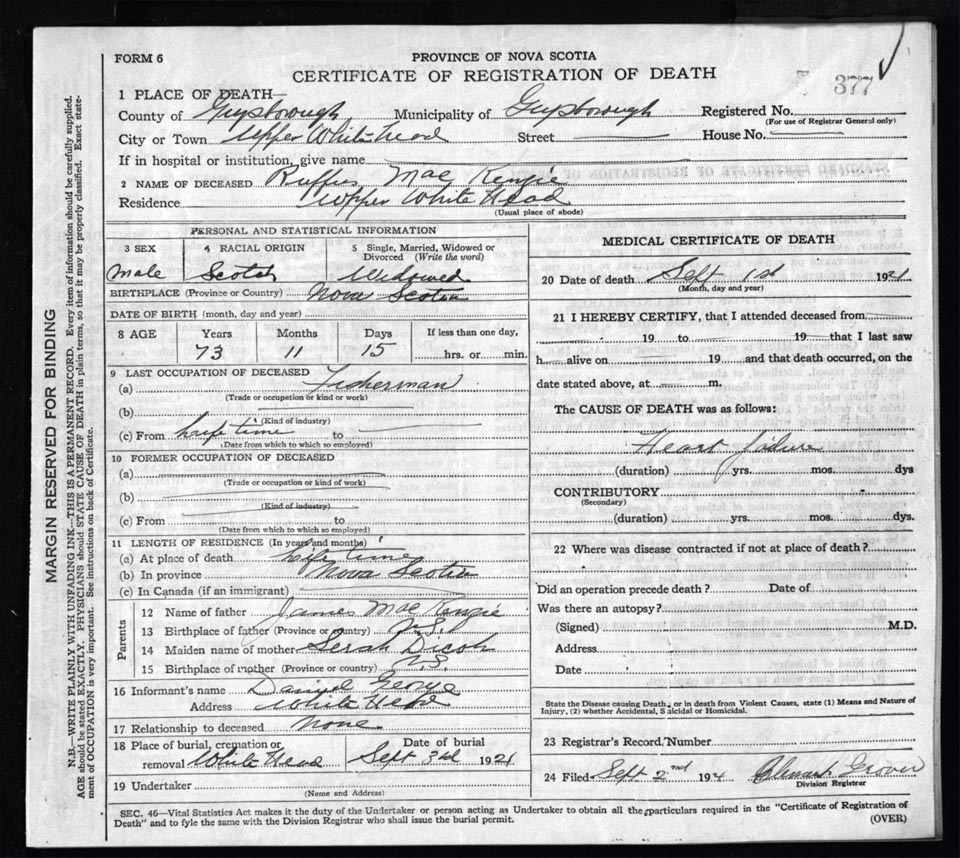 FORM 6
PROVINCE OF NOVA SCOTIA
CERTIFICATE OF REGISTRATION OF DEATH
377
1 PLACE OF DEATH—
County of Guysborough Municipality of Guysborough Registered No.
(For use of Registrar General only)
City or Town Upper White Head Street House No.
If in hospital or institution, give name
2 NAME OF DECEASED Rufus Mac Kenzie
Residence Upper White Head
(Usual place of abode)
PERSONAL AND STATISTICAL INFORMATION
3 SEX 4 RACIAL ORIGIN 5 Single, Married, Widowed or Divorced (Write the word)
Male Scotch Widowed
BIRTHPLACE (Province or Country) Nova Scotia
DATE OF BIRTH (month, day and year)
8 AGE Years Months Days If less than one day,
73 11 15 hrs. or min.
9 LAST OCCUPATION OF DECEASED
(a) Fisherman
(Trade or occupation or kind or work)
(b)
(Kind of industry)
(c) From life time to
(Date from which to which so employed)
10 FORMER OCCUPATION OF DECEASED
(a)
(Trade or occupation or kind of work)
(b)
(Kind of industry)
(c) From to
(Date from which to which so employed)
11 LENGTH OF RESIDENCE (In years and months)
(a) At place of death life time
(b) In province Nova Scotia
(c) In Canada (if an immigrant)
Parents
12 Name of father James Mac Kenzie
13 Birthplace of father (Province or country) N.S.
14 Maiden name of mother Serah
15 Birthplace of mother (Province or country) N.S.
16 Informant's name Daniel George
Address White Head
17 Relationship to deceased None
18 Place of burial, cremation or removal White Head Date of burial Sept 3rd 192
19 Undertaker
(Name and Address)
MEDICAL CERTIFICATE OF DEATH
20 Date of death Sept 1st 192
(Month, day and year)
21 I HEREBY CERTIFY, that I attended deceased from
19 to 19 that I last saw
h alive on 19 and that death occurred, on the
date stated above, at m.
The CAUSE OF DEATH was as follows:
Heart failure
(duration) yrs. mos. dys
CONTRIBUTORY
(Secondary)
(duration) yrs. mos. dys.
22 Where was disease contracted if not at place of death?
Did an operation precede death? Date of
Was there an autopsy?
(Signed) M.D.
Address
Date
State the Disease causing Death, or in death from Violent Causes, state (1) Means and Nature of
Injury, (2) whether Accidental, Suicidal or Homicidal.
23 Registrar's Record Number
24 Filed Sept 2nd 192 Grover
Division Registrar
SEC. 46—Vital Statistics Act makes it the duty of the Undertaker or person acting as Undertaker to obtain all the particulars required in the "Certificate of Registration of
Death" and to fyle the same with the Division Registrar who shall issue the burial permit.
(OVER)
MARGIN RESERVED FOR BINDING
N.B.—WRITE PLAINLY WITH UNFADING INK—THIS IS A PERMANENT RECORD. Every item of information should be carefully supplied.
AGE should be stated EXACTLY. PHYSICIANS should STATE CAUSE OF DEATH in plain terms, so that it may be properly classified. Exact state-
ment of OCCUPATION is very important. See instructions on back of Certificate.